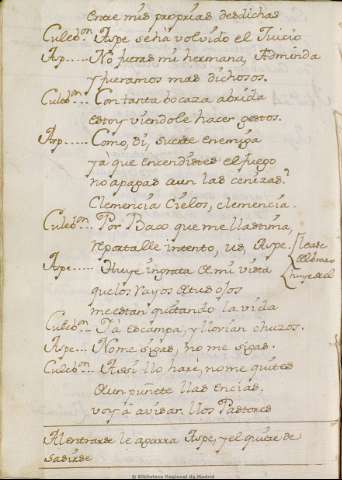 entre mis proprias desdichas
Culeb.on Aspe seha volvido el Juicio
Asp..... No fueras mi hermana, Adminda
y fueramos mas dichosos.
Culeb.on... Con tanta bocaza abrida
estoy viendole hacer gestos.
Asp..... Como, di, suerte enemiga
ya que encendistes el fuego
no apagas aun las cenizas?
Clemencia Cielos, clemencia.
Culeb.on Por Baco que me llastima,
reportalle intento, us, Aspe.
Aspe..... Huye ingrata de mi vista
que los rayos de tus ojos
me estan quitando la vida
Culeb.on.. Ya escampa, y llovian chuzos.
Aspe... No me sigas, no me sigas.
Culeb.on.. Assi llo haré, no me quites
aun puñete llas encias,
voy à avisar llos Pastores
Al entrarse le agarra Aspe, y el quiere
© Biblioteca Nacional de Madrid